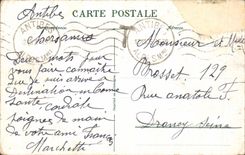 CARTE POSTALE
Antibes
Deux mots pour
vous faire connaitre
que je suis arrivé
Destination en bonne
Santé Cordiale
poignée de main
de votre ami
Marchette
Monsieur et
Brosset. 129
Rue anatole F.
Drancy Seine
T